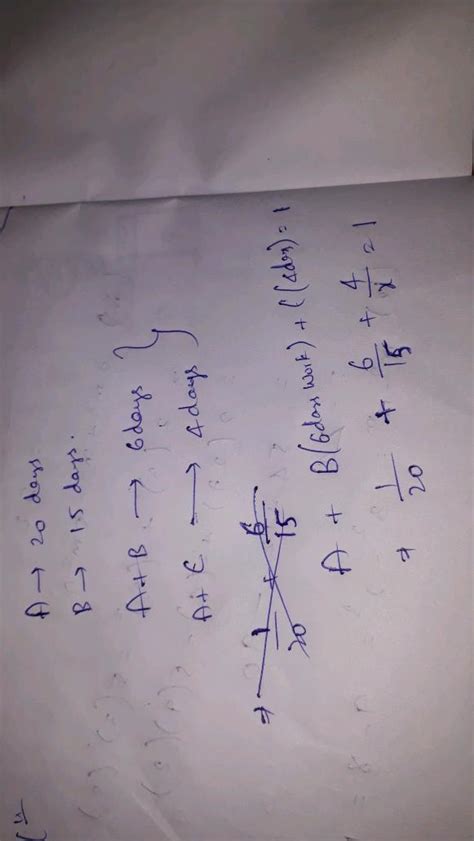 A → 20 days
B → 15 days.
A+B → 6 days }
A+C → 4 days
⇒ 1/20 + 6/15
A + B(6 days work) + C(4 days) = 1
⇒ 1/20 + 6/15 + 4/x = 1